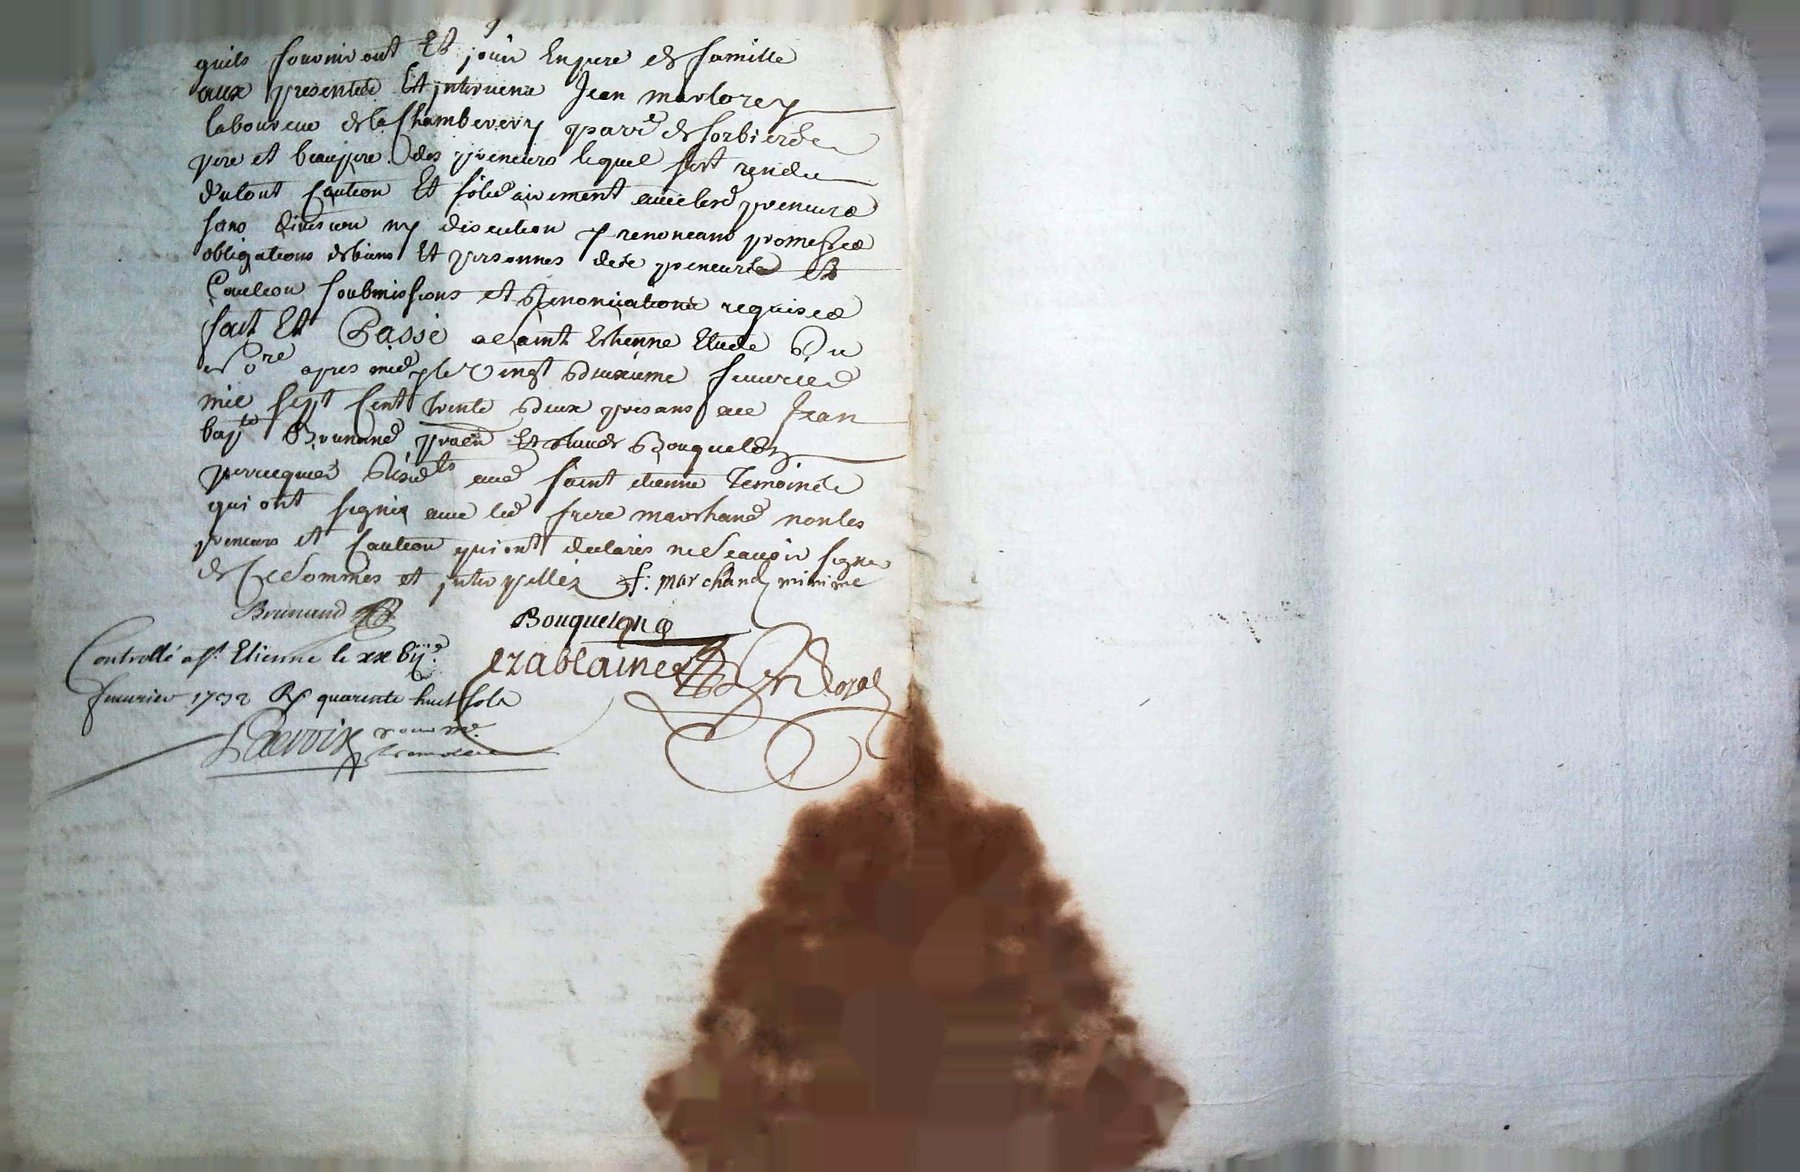 quils fourniront Et jouir En pere de famille
aux presentes Et intervenu Jean marlorey
laboureur de la Chambevery parr.e de sorbierde
pere et beaupere des preneurs lequel sest rendu
dutout Caution Et solidairement avec lesd preneurs
sans Division ny discution y renoncant promesses
obligations de biens Et personnes desd preneurs Et
Caution soubmissions et Renonciations requises
fait Et Passé a Saint Estienne Etude Du
no.re apres midy le Vingt Deuxieme feuvrier
mil sept Cent trente Deux presans me Jean
bap.te Brunand prat Et Claude Bouqueton
perruquier Resid.ts aud saint etienne Temoins
qui ont signés avec led frere marchand non les
preneurs et Caution qui ont declarés ne scavoir signer
de Ce Sommés et interpellés f: marchand minime
Brunand
Bouqueton
Controllé a St. Etienne le xxbij.e
feuvrier 1732 Rx quarente huit sols
Delavoix pour Mr.